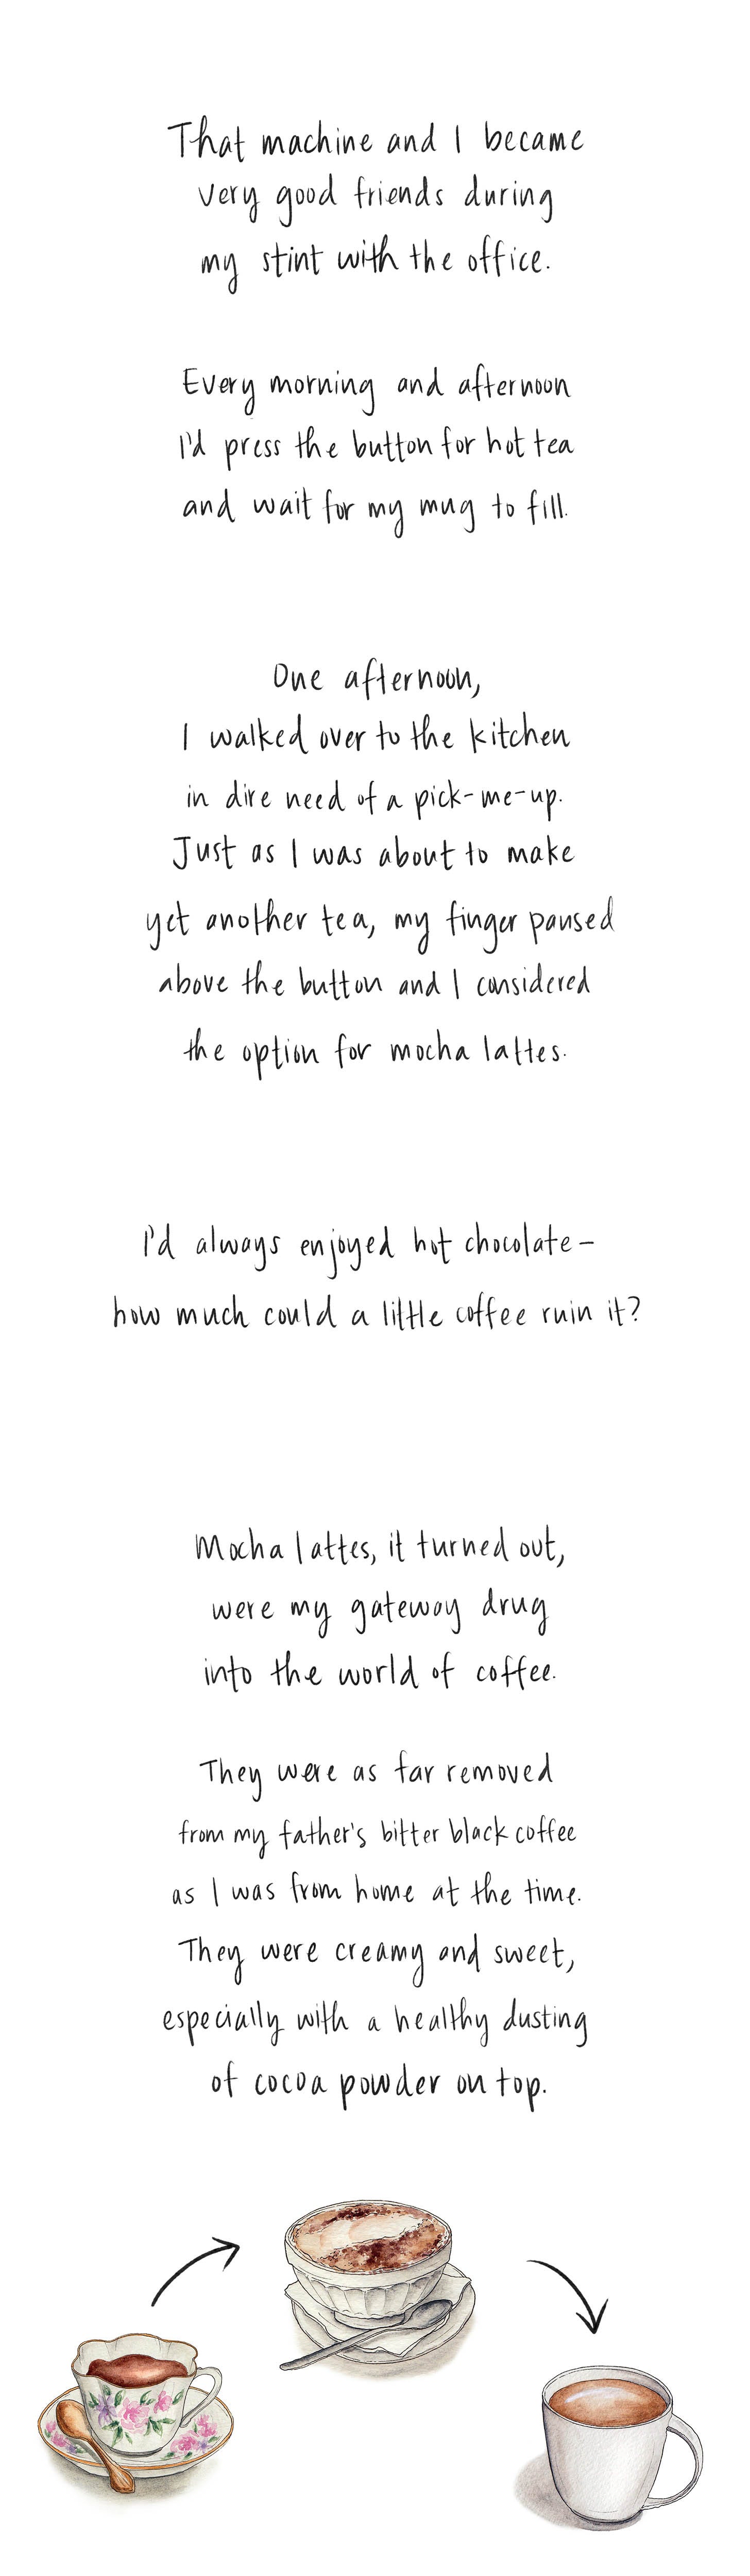 That machine and I became
very good friends during
my stint with the office.
Every morning and afternoon
I'd press the button for hot tea
and wait for my mug to fill.
One afternoon,
I walked over to the kitchen
in dire need of a pick-me-up.
Just as I was about to make
yet another tea, my finger paused
above the button and I considered
the option for mocha lattes.
I'd always enjoyed hot chocolate–
how much could a little coffee ruin it?
Mocha lattes, it turned out,
were my gateway drug
into the world of coffee.
They were as far removed
from my father's bitter black coffee
as I was from home at the time.
They were creamy and sweet,
especially with a healthy dusting
of cocoa powder on top.